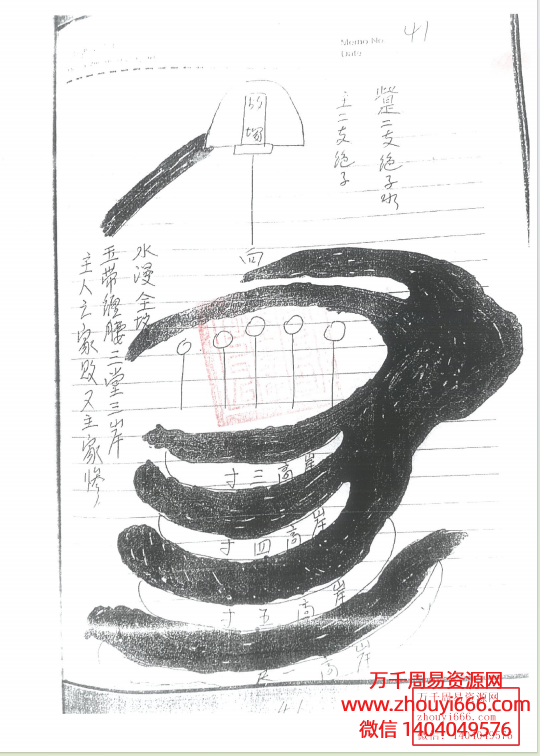 41
Memo No.
Date
是二支绝子水
主二支绝子
向
水漫全坟
玉带缠腰三堂三岸
主人立家败又主家惨
岸高三寸
岸高四寸
岸高五寸
岸高一尺
41
万千周易资源网
www.zhouyi666.com
微信 1404049576
万千周易资源网
zhouyi666.com
微信: 1404049576